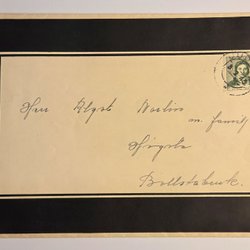 Herr Algot Norlin
m. familj
Högsta
Bollstabruk.